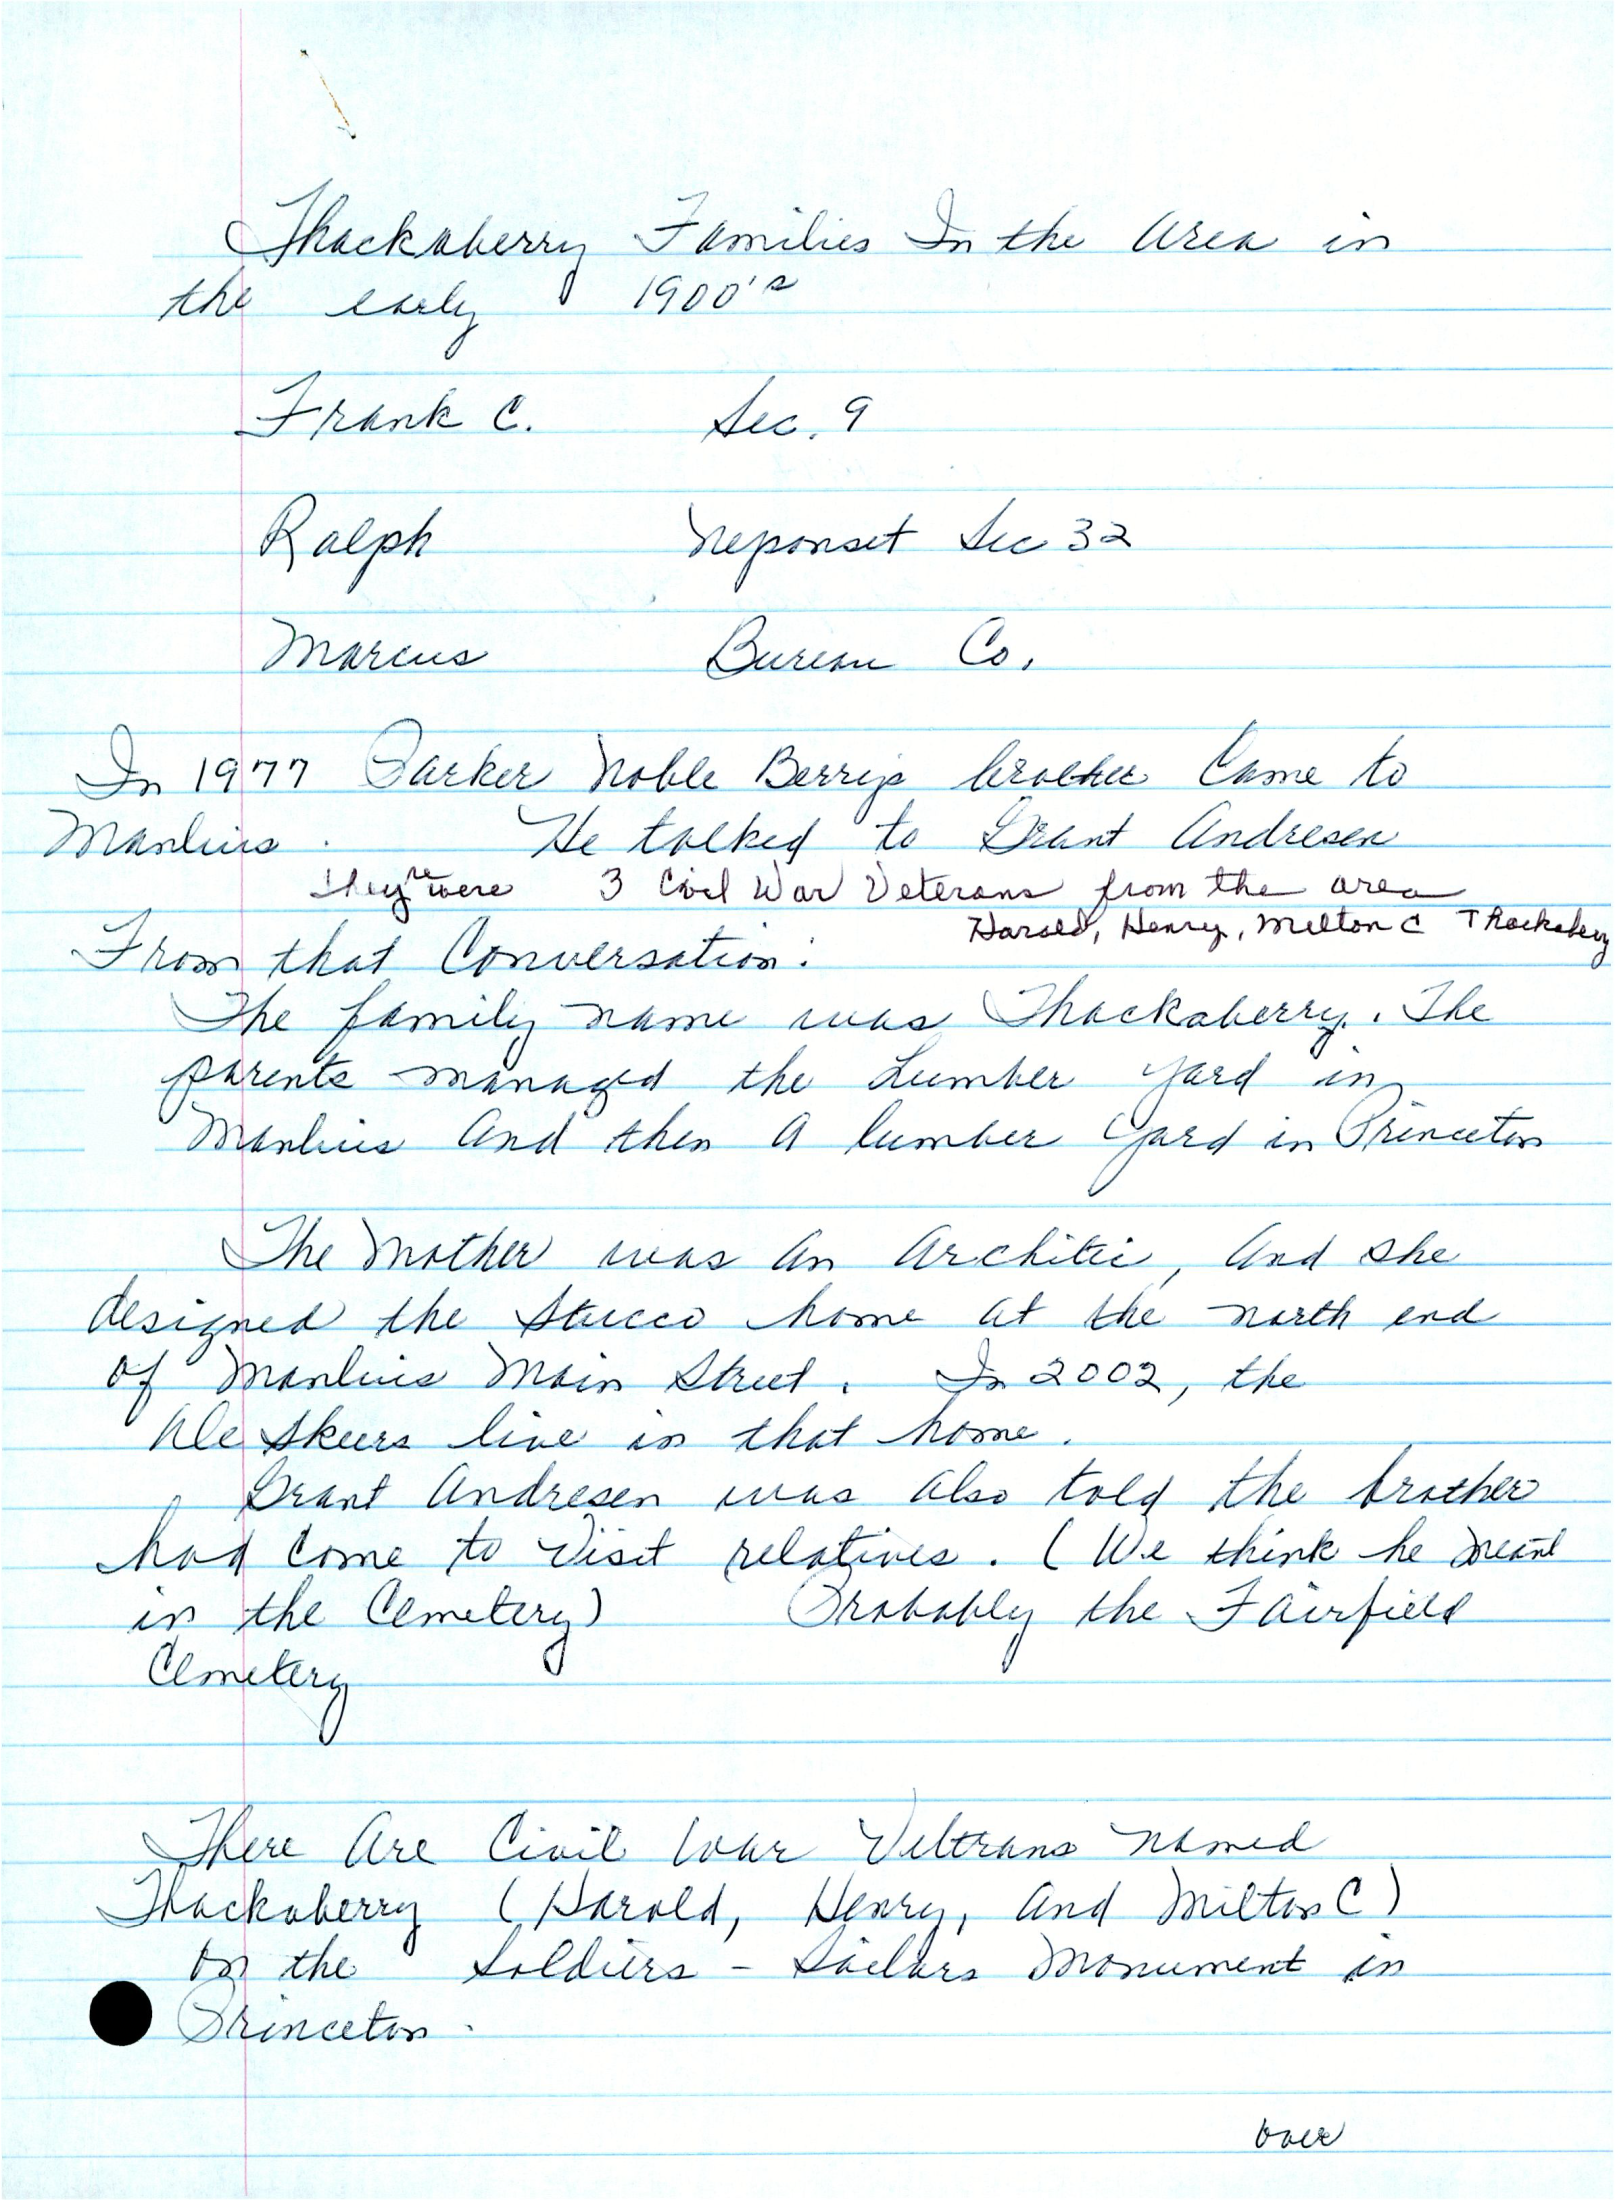 Thackaberry Families In the Area in
the early 1900's
Frank C. Sec. 9
Ralph Neponset Sec 32
Marcus Bureau Co.
In 1977 Parker Noble Berrys brother Came to
Manlius. He talked to Grant Andresen
They were 3 Civil War Veterans from the area
Harold, Henry, Milton C Thackabery
From that Conversation:
The family name was Thackaberry. The
parents managed the Lumber Yard in
Manlius And then A lumber Yard in Princeton
The Mother was An Architec, And she
designed the Stucco home at the north end
of Manlius Main Street. In 2002, the
live in that home.
Grant Andresen was also told the brother
had Come to Visit relatives. (We think he meant
in the Cemetery) Probably the Fairfield
Cemetery
There Are Civil War Veterans named
Thackaberry (Harold, Henry, And Milton C)
on the Soldiers - Sailors Monument in
Princeton.
over